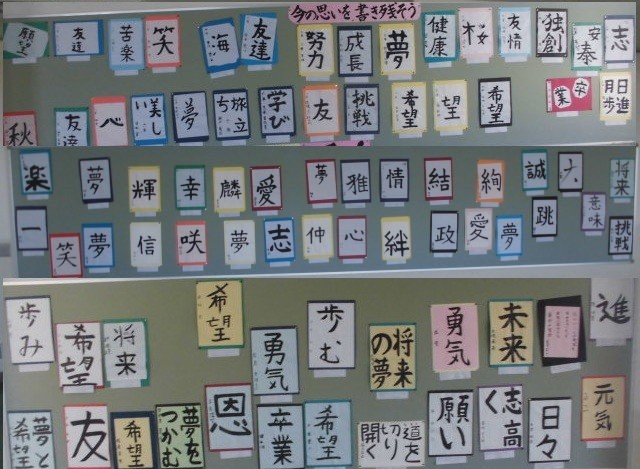 今の思いを書き残そう
願望
友達
苦楽
笑
海
友達
努力
成長
夢
健康
桜
友情
独創
安泰
志
秋
友達
心
美しい
夢
旅立ち
学び
友
挑戦
希望
望
希望
卒業
日進月歩
楽
夢
輝
幸
麟
愛
夢
雅
情
結
絢
誠
将来
一
笑
夢
信
咲
夢
志
仲
心
絆
政
愛
夢
跳
意味
挑戦
歩み
希望
将来
希望
勇気
歩む
将来の夢
勇気
未来
進
夢と希望
友
希望
夢をつかむ
恩
卒業
希望
道を切り開く
願い
志高く
日々
元気